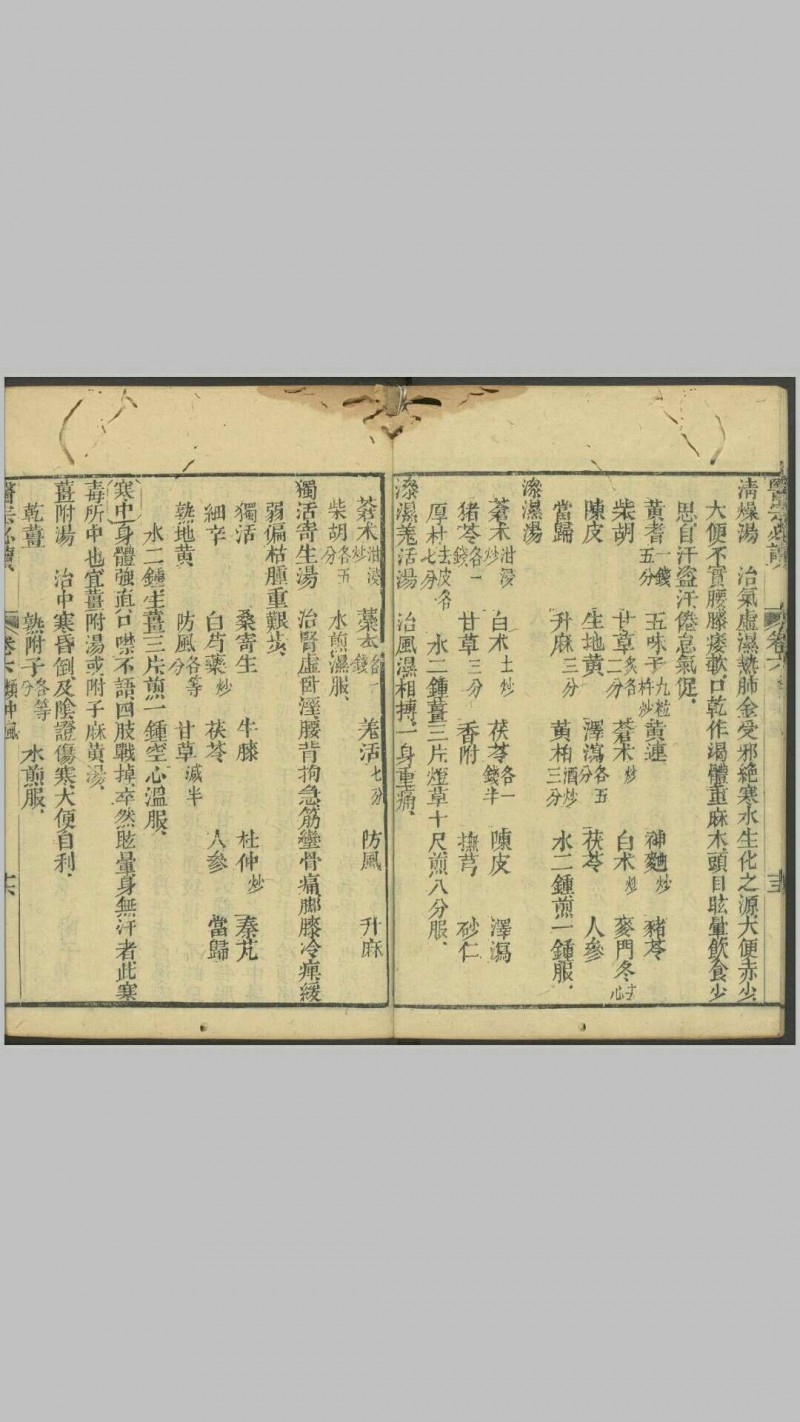 醫宗必讀 卷六
清燥湯 治氣虛濕熱肺金受邪絕寒水生化之源大便赤少
大便不實腰膝痿軟口乾作渴體重麻木頭目眩暈飲食少
思自汗盜汗倦怠氣促
黃耆一錢五分 五味子九粒杵炒 黃連 神麯炒 豬苓
柴胡 甘草炙各二分 蒼木炒 白朮炒 麥門冬去心
陳皮 生地黃 澤瀉各五分 茯苓 人參
當歸 升麻三分 黃柏酒炒三分 水二鍾煎一鍾服
滲濕湯
蒼朮泔浸炒 白朮土炒 茯苓各一錢半 陳皮 澤瀉
猪苓各一錢 甘草三分 香附 撫芎 砂仁
厚朴去皮各七分 水二鍾薑三片燈草十尺煎八分服
滲濕羗活湯 治風濕相搏一身重痛
蒼朮泔浸炒 藁本各一錢 羗活七分 防風 升麻
柴胡各五分 水煎濕服
獨活寄生湯 治腎虛卧溼腰背拘急筋攣骨痛脚膝冷痺緩
弱偏枯腫重艱步
獨活 桑寄生 牛膝 杜仲炒 秦艽
細辛 白芍藥炒 茯苓 人參 當歸
熟地黃 防風各等分 甘草減半
水二鍾生薑三片煎一鍾空心溫服
寒中身體強直口噤不語四肢戰掉卒然眩暈身無汗者此寒
毒所中也宜薑附湯或附子麻黃湯
薑附湯 治中寒昏倒及陰證傷寒大便自利
乾薑 熟附子各等分 水煎服
醫宗必讀 卷六類中風 十六